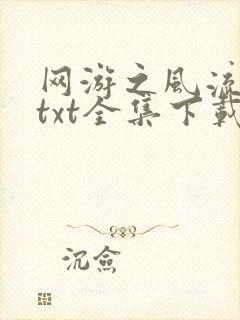 网游之风流
txt全集下载
沉烩